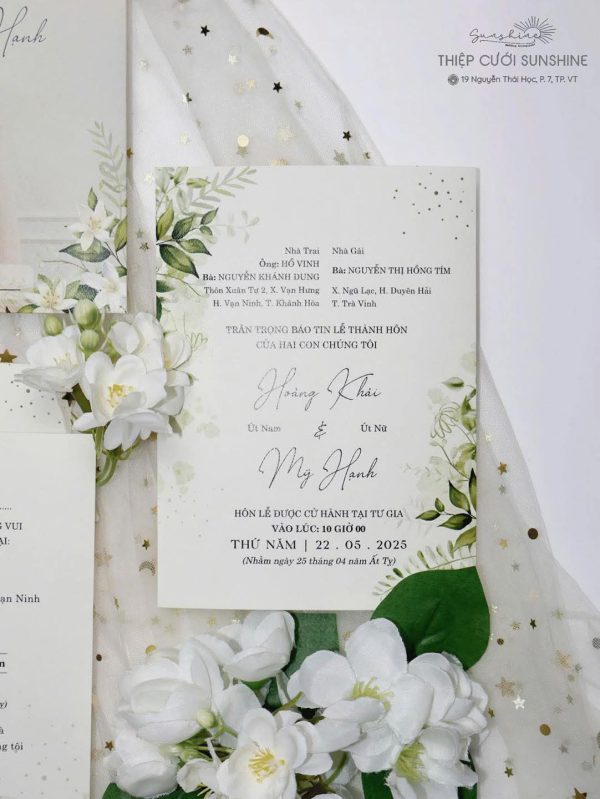 Hạnh
Sunshine
THIỆP CƯỚI SUNSHINE
19 Nguyễn Thái Học, P. 7, TP. VT
Nhà Trai
Ông: HỒ VINH
Bà: NGUYỄN KHÁNH DUNG
Thôn Xuân Tự 2, X. Vạn Hưng
H. Vạn Ninh, T. Khánh Hòa
Nhà Gái
Bà: NGUYỄN THỊ HỒNG TÍM
X. Ngũ Lạc, H. Duyên Hải
T. Trà Vinh
TRÂN TRỌNG BÁO TIN LỄ THÀNH HÔN
CỦA HAI CON CHÚNG TÔI
Hoàng Khải
Út Nam & Út Nữ
Mỹ Hạnh
HÔN LỄ ĐƯỢC CỬ HÀNH TẠI TƯ GIA
VÀO LÚC: 10 GIỜ 00
THỨ NĂM | 22 . 05 . 2025
(Nhằm ngày 25 tháng 04 năm Ất Tỵ)
G VUI
ẠI:
ạn Ninh
n
y)
à
g tội